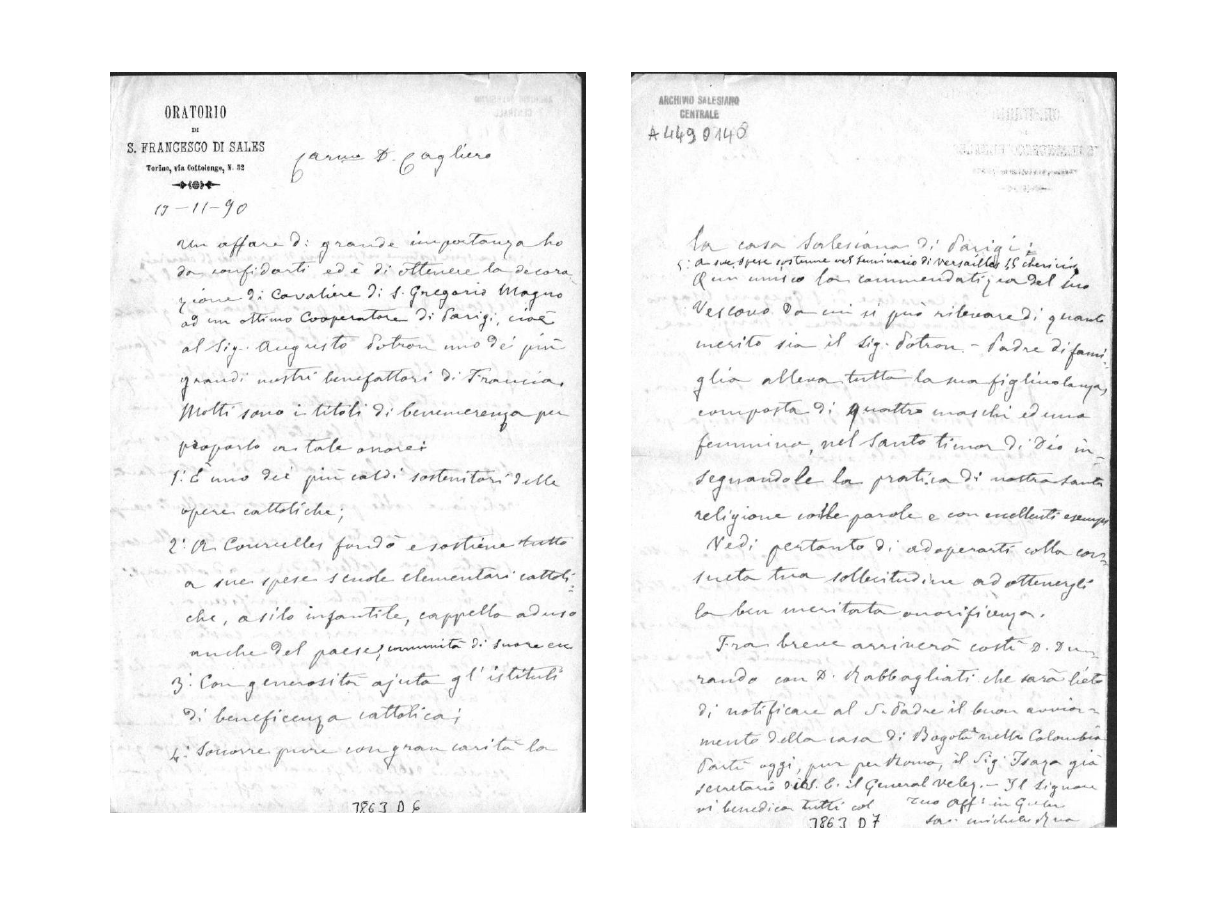 ORATORIO
DI
S. FRANCESCO DI SALES
Torino, via Cottolengo, N. 32
Carme D. Cagliero
-11-90
Un affare di grande importanza ho
da confidarti ed è di ottenere la decora
zione di Cavaliere di S. Gregorio Magno
ad un ottimo Cooperatore di Parigi, cioè
al Sig. Augusto Potron uno dei più
grandi nostri benefattori di Francia.
Molti sono i titoli di benemerenza per
proporlo a tale onore:
1.° È uno dei più caldi sostenitori delle
opere cattoliche;
2.° A Courcelles fondò e sostiene tutto
a sue spese scuole elementari cattoli-
che, asilo infantile, cappella ad uso
anche del paese, comunità di suore ecc
3.° Con generosità ajuta gl'istituti
di beneficenza cattolica;
4.° Soccorre pure con gran carità la
7863 D 6
ARCHIVIO SALESIANO
CENTRALE
A 4490148
la casa Salesiana di Parigi;
5.° a sue spese sostenne nel seminario di Versailles 15 chierici
Qui unisco la commendatizia del suo
Vescovo da cui si può rilevare di quanto
merito sia il Sig. Potron. - Padre di fami-
glia alleva tutta la sua figliuolanza,
composta di quattro maschi ed una
femmina, nel santo timor di Dio in-
segnandole la pratica di nostra santa
religione colle parole e con eccellenti esempi
Vedi pertanto di adoperarti colla con-
sueta tua sollecitudine ad ottenergli
la ben meritata onorificenza.
Fra breve arriverà costì D. Du-
rando con D. Rabbagliati che sarà lieto
di notificare al S. Padre il buon avvia-
mento della casa di Bogotà nella Colombia
Partì oggi, pur per Roma, il Sig. Isaza già
secretario di S. E. il General Velez. - Il Signore
vi benedica tutti col tuo Aff.° in G.
Sac. Michele Rua
7863 D 7